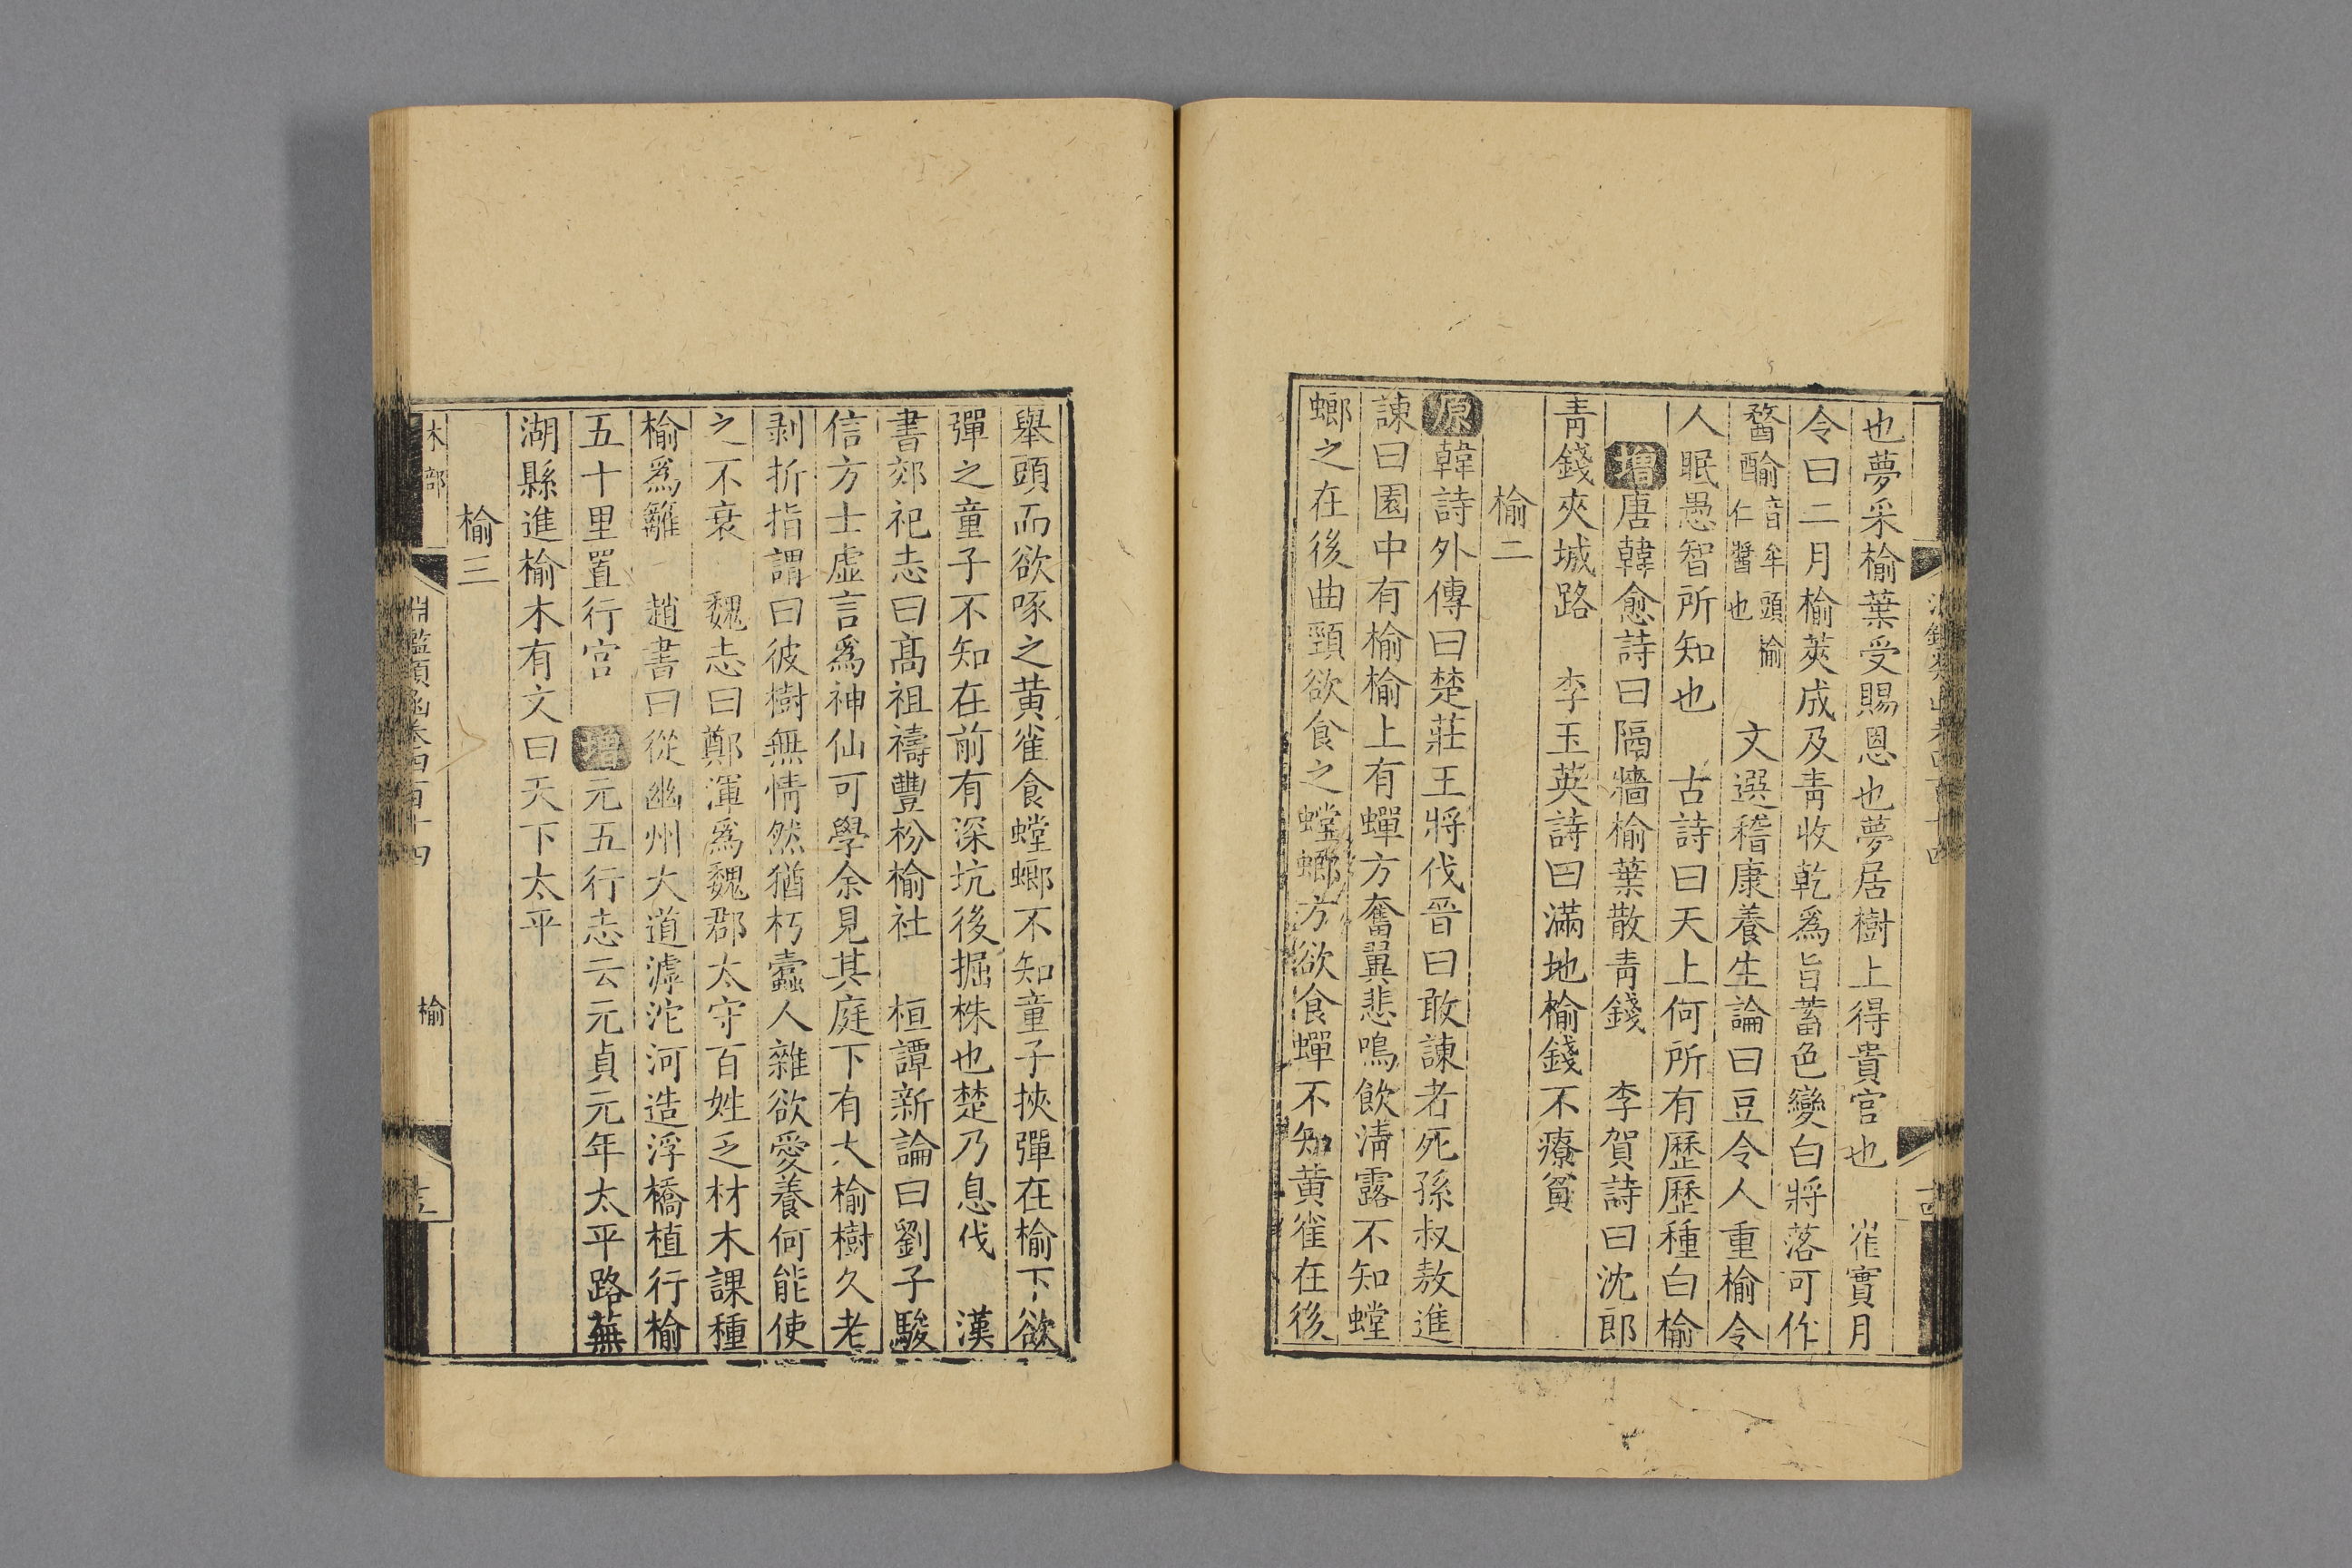 也夢采榆葉受賜恩也夢居樹上得貴官也　崔實月
令曰二月榆莢成及青收乾爲旨蓄色變白將落可作
䤅䤅音牟頭榆仁醬也　文選嵇康養生論曰豆令人重榆令
人眠愚智所知也　古詩曰天上何所有歷歷種白榆
增唐韓愈詩曰隔牆榆葉散青錢　李賀詩曰沈郎
青錢夾城路　李玉英詩曰滿地榆錢不療貧
榆二
原韓詩外傳曰楚莊王將伐晉曰敢諫者死孫叔敖進
諫曰園中有榆榆上有蟬方奮翼悲鳴飲清露不知螳
螂之在後曲頸欲食之螳螂方欲食蟬不知黃雀在後
舉頭而欲啄之黃雀食螳螂不知童子挾彈在榆下欲
彈之童子不知在前有深坑後掘株也楚乃息伐　漢
書郊祀志曰高祖禱豐枌榆社　桓譚新論曰劉子駿
信方士虛言爲神仙可學余見其庭下有大榆樹久老
剥折指謂曰彼樹無情然猶朽蠹人雜欲愛養何能使
之不衰　魏志曰鄭渾爲魏郡太守百姓乏材木課種
榆爲籬　趙書曰從幽州大道滹沱河造浮橋植行榆
五十里置行宫　增元五行志云元貞元年太平路蕪
湖縣進榆木有文曰天下太平
榆三
木部
淵鑑類函卷四百十四
榆